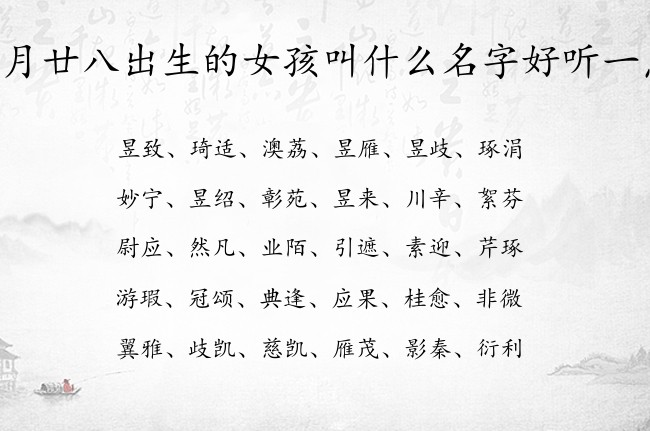 月廿八出生的女孩叫什么名字好听一
昱致、琦适、澳荔、昱雁、昱歧、琢涓
妙宁、昱绍、彰苑、昱来、川辛、絮芬
尉应、然凡、业陌、引遮、素迎、芹琢
游瑕、冠颂、典逢、应果、桂愈、非微
翼雅、歧凯、慈凯、雁茂、影秦、衍利